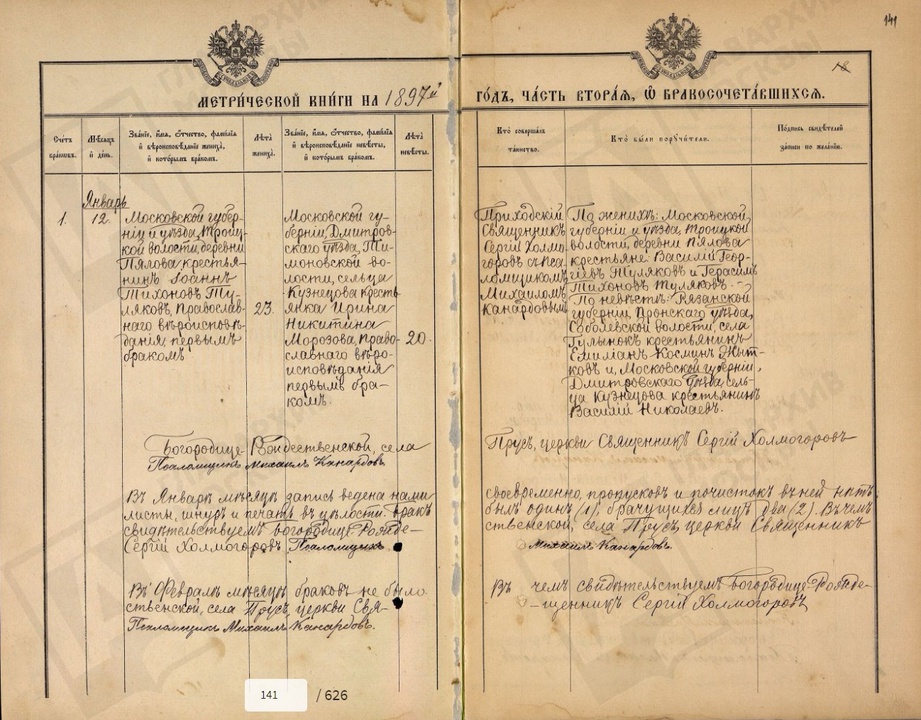 141
МЕТРИ́ЧЕСКОЙ КНИ́ГИ НА 1897й ГО́ДЪ, ЧА́СТЬ ВТОРА́Я, Ѿ БРАКОСОЧЕТА́ВШИХСѦ.
Счётъ браковъ.
Мѣсяцъ и день.
Зва́нїе, и́мѧ, ѻ҆́тчество, фамилїѧ
и҆ вѣроисповѣ́данїе жениха̀,
и҆ кото́рымъ бра́комъ.
Лѣта̀ жениха̀.
Зва́нїе, и́мѧ, ѻ҆́тчество, фамилїѧ
и҆ вѣроисповѣ́данїе невѣ́сты,
и҆ кото́рымъ бра́комъ.
Лѣта̀ невѣ́сты.
Кто̀ соверша́лъ
та́инство.
Кто̀ бы́ли пор­учи́тели.
По́дпись свидѣ́телей
за́писи по жела́нїю.
Январь
1.
12.
Московской губер-
ніи и уѣзда, Троиц-
кой волости, деревни
Пялова крестья-
нинъ Іоаннъ
Тихоновъ Ту-
ляковъ, Православ-
наго вѣроисповѣ-
данія, первымъ
бракомъ
23.
Московской гу-
берніи, Дмитров-
скаго уѣзда, Ти-
моновской во-
лости, сельца
Кузнецова кресть-
янка Ирина
Никитина
Морозова, Право-
славнаго вѣро-
исповѣданія
первымъ бра-
комъ.
20.
Приходскій
Священникъ
Сергій Холмо-
горовъ съ Пса-
ломщикомъ
Михаиломъ
Канардовымъ
По женихѣ: Московской
губерніи и уѣзда, Троицкой
волости, деревни Пялова
крестьяне: Василій Геор-
гіевъ Туляковъ и Герасимъ
Тихоновъ Туляковъ.
По невѣстѣ: Рязанской
губерніи, Пронскаго уѣзда,
волости, села
Гулынокъ крестьянинъ
Емиліанъ Косминъ
и, Московской губерніи,
Дмитровскаго уѣзда, сель-
ца Кузнецова крестьянинъ
Василій Николаевъ.
Богородице-Рождественской, села Прусъ, церкви Священникъ Сергій Холмогоровъ
Псаломщикъ Михаилъ Канардовъ.
Въ Январѣ мѣсяцѣ запись ведена нами своевременно, пропусковъ и почистокъ въ ней нѣтъ
листы, шнуръ и печать въ цѣлости браковъ былъ одинъ (1), брачущихся лицъ два (2). Въ чемъ
свидѣтельствуемъ Богородице-Рожде-ственской, села Прусъ, церкви Священникъ
Сергій Холмогоровъ Псаломщикъ Михаилъ Канардовъ.
Въ Февралѣ мѣсяцѣ браковъ не было Въ чемъ свидѣтельствуемъ Богородице-Рожде-
ственской, села Прусъ, церкви Свя-щенникъ Сергій Холмогоровъ
Псаломщикъ Михаилъ Канардовъ.
141 / 626